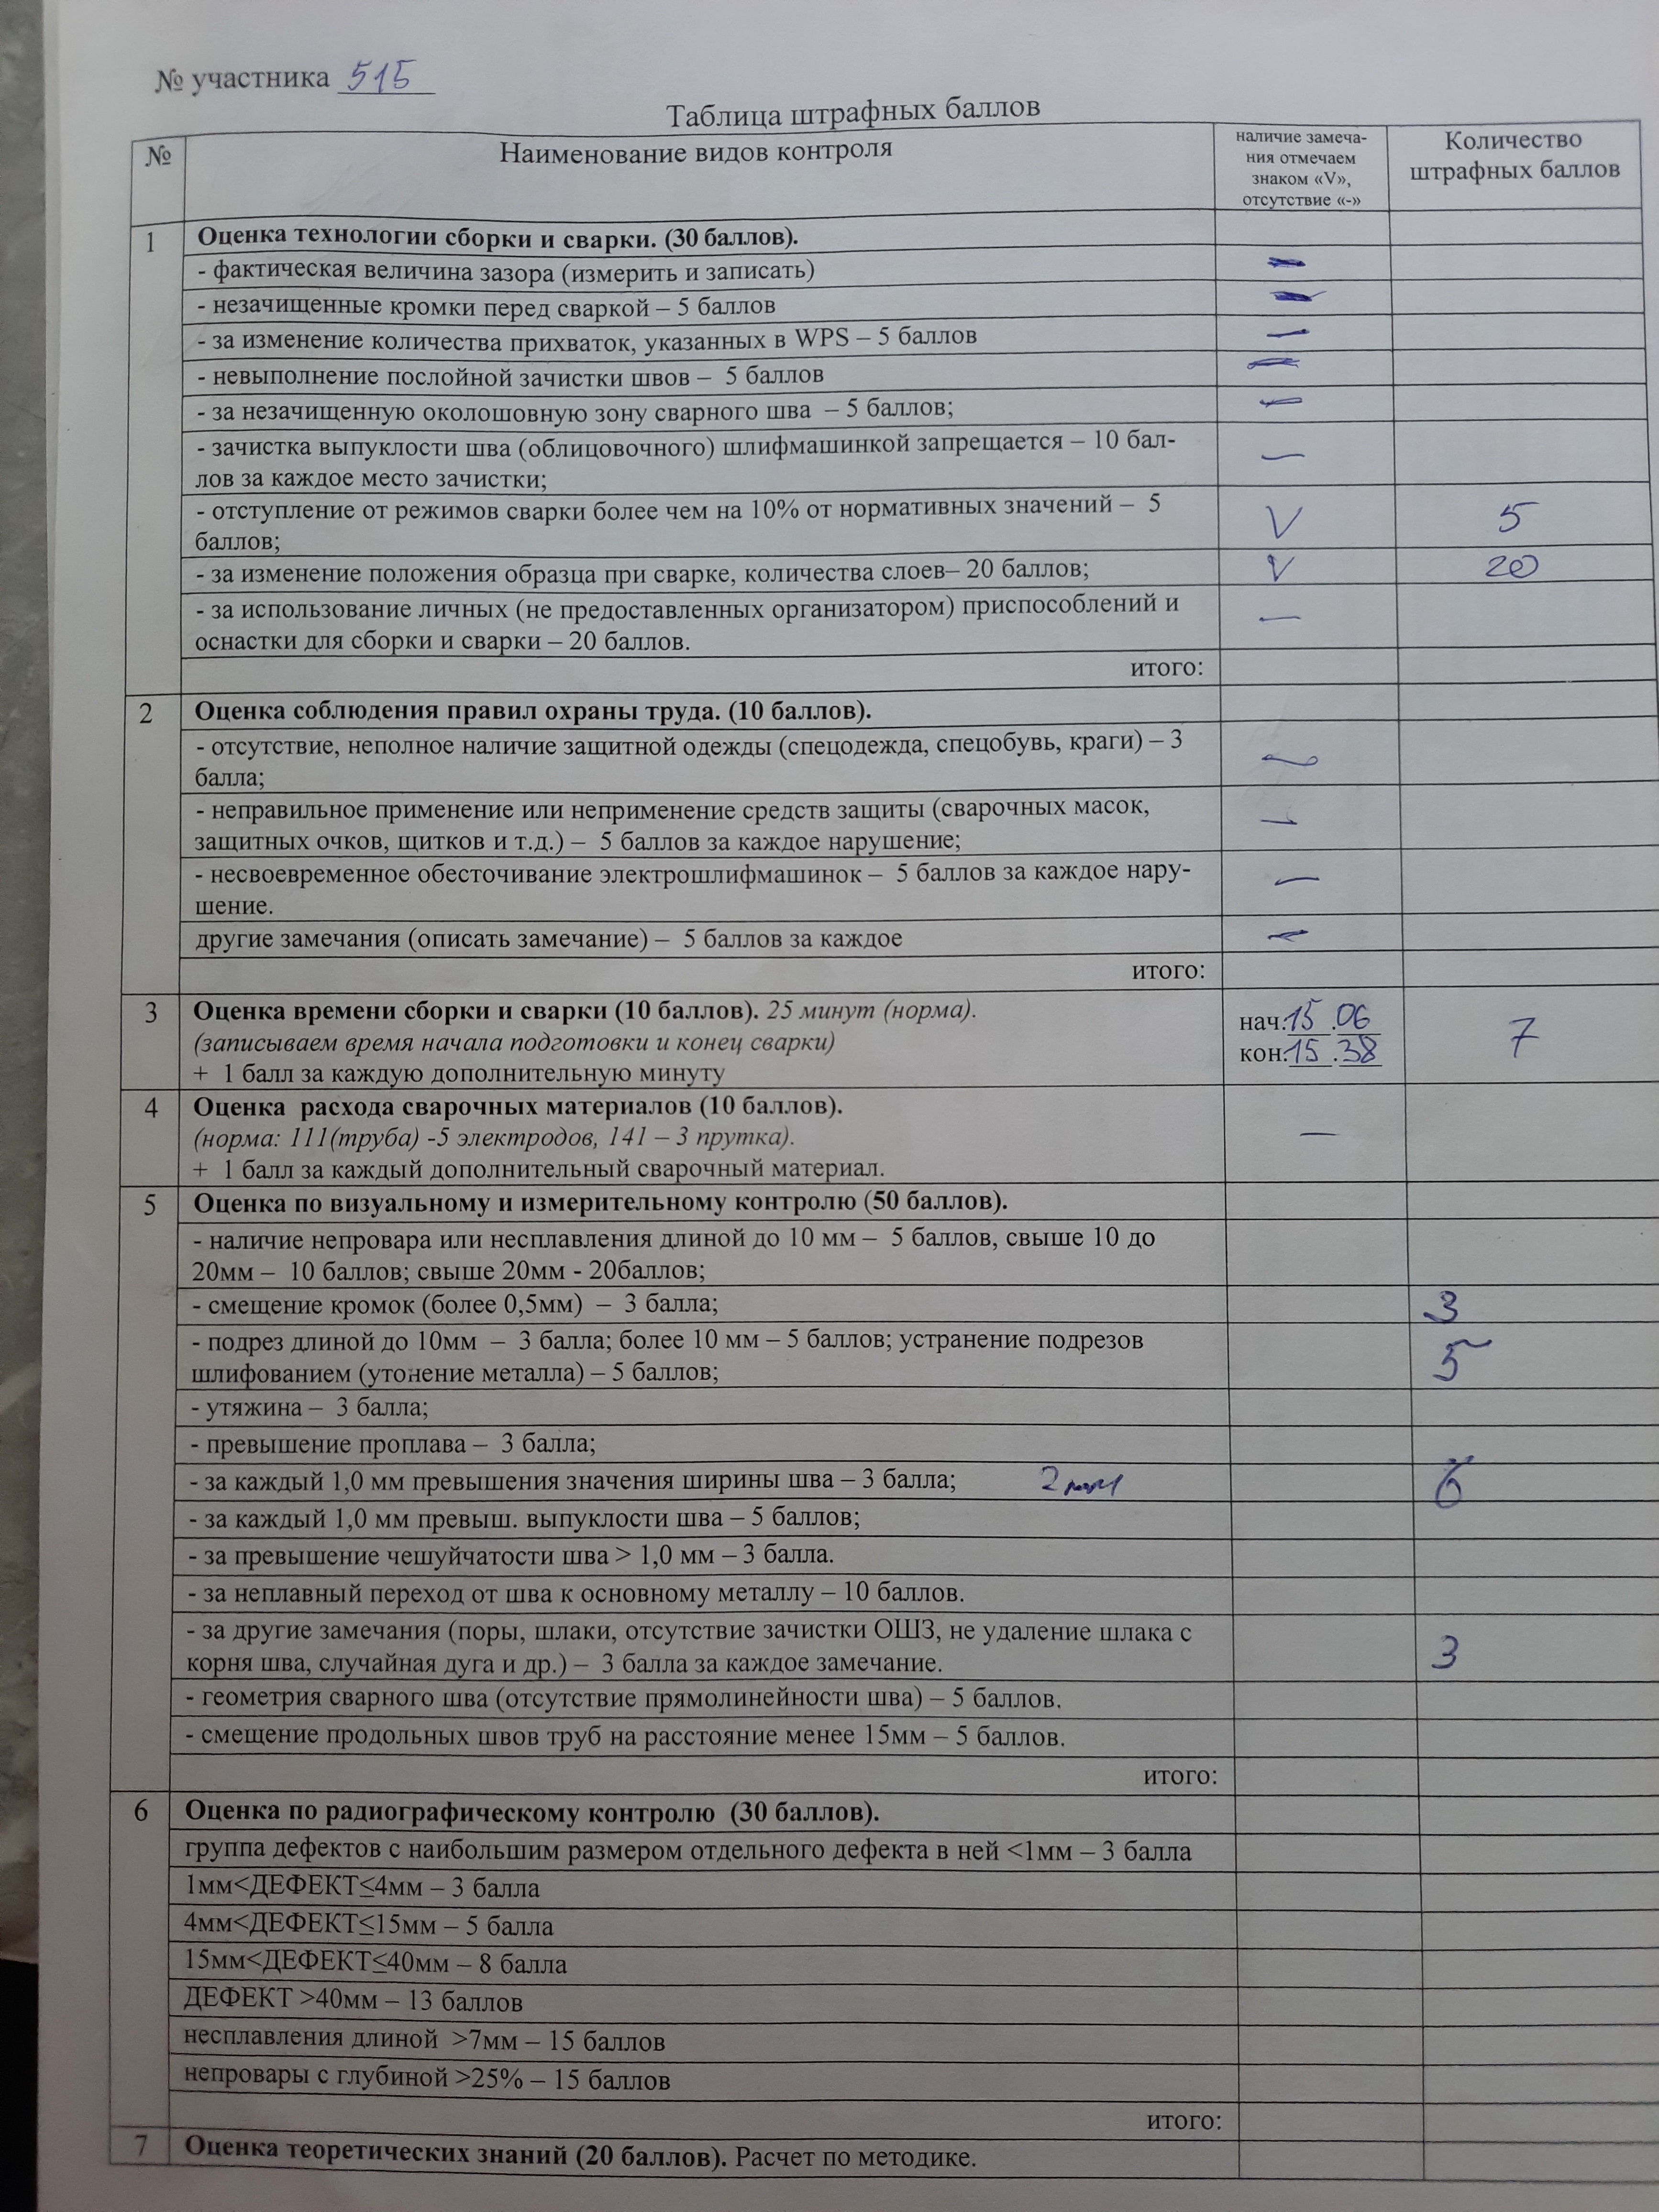 № участника 515
Таблица штрафных баллов
№
Наименование видов контроля
наличие замеча-
ния отмечаем
знаком «V»,
отсутствие «-»
Количество
штрафных баллов
1
Оценка технологии сборки и сварки. (30 баллов).
- фактическая величина зазора (измерить и записать) –
- незачищенные кромки перед сваркой – 5 баллов –
- за изменение количества прихваток, указанных в WPS – 5 баллов –
- невыполнение послойной зачистки швов – 5 баллов –
- за незачищенную околошовную зону сварного шва – 5 баллов; –
- зачистка выпуклости шва (облицовочного) шлифмашинкой запрещается – 10 бал-
лов за каждое место зачистки; –
- отступление от режимов сварки более чем на 10% от нормативных значений – 5
баллов; V 5
- за изменение положения образца при сварке, количества слоев– 20 баллов; V 20
- за использование личных (не предоставленных организатором) приспособлений и
оснастки для сборки и сварки – 20 баллов. –
итого:
2
Оценка соблюдения правил охраны труда. (10 баллов).
- отсутствие, неполное наличие защитной одежды (спецодежда, спецобувь, краги) – 3
балла; –
- неправильное применение или неприменение средств защиты (сварочных масок,
защитных очков, щитков и т.д.) – 5 баллов за каждое нарушение; –
- несвоевременное обесточивание электрошлифмашинок – 5 баллов за каждое нару-
шение. –
другие замечания (описать замечание) – 5 баллов за каждое –
итого:
3
Оценка времени сборки и сварки (10 баллов). 25 минут (норма).
(записываем время начала подготовки и конец сварки)
+ 1 балл за каждую дополнительную минуту
нач:15.06
кон:15.38
7
4
Оценка расхода сварочных материалов (10 баллов).
(норма: 111(труба) -5 электродов, 141 – 3 прутка).
+ 1 балл за каждый дополнительный сварочный материал.
–
5
Оценка по визуальному и измерительному контролю (50 баллов).
- наличие непровара или несплавления длиной до 10 мм – 5 баллов, свыше 10 до
20мм – 10 баллов; свыше 20мм - 20баллов;
- смещение кромок (более 0,5мм) – 3 балла; 3
- подрез длиной до 10мм – 3 балла; более 10 мм – 5 баллов; устранение подрезов
шлифованием (утонение металла) – 5 баллов; 5
- утяжина – 3 балла;
- превышение проплава – 3 балла;
- за каждый 1,0 мм превышения значения ширины шва – 3 балла; 2мм 6
- за каждый 1,0 мм превыш. выпуклости шва – 5 баллов;
- за превышение чешуйчатости шва > 1,0 мм – 3 балла.
- за неплавный переход от шва к основному металлу – 10 баллов.
- за другие замечания (поры, шлаки, отсутствие зачистки ОШЗ, не удаление шлака с
корня шва, случайная дуга и др.) – 3 балла за каждое замечание. 3
- геометрия сварного шва (отсутствие прямолинейности шва) – 5 баллов.
- смещение продольных швов труб на расстояние менее 15мм – 5 баллов.
итого:
6
Оценка по радиографическому контролю (30 баллов).
группа дефектов с наибольшим размером отдельного дефекта в ней <1мм – 3 балла
1мм<ДЕФЕКТ≤4мм – 3 балла
4мм<ДЕФЕКТ≤15мм – 5 балла
15мм<ДЕФЕКТ≤40мм – 8 балла
ДЕФЕКТ >40мм – 13 баллов
несплавления длиной >7мм – 15 баллов
непровары с глубиной >25% – 15 баллов
итого:
7
Оценка теоретических знаний (20 баллов). Расчет по методике.